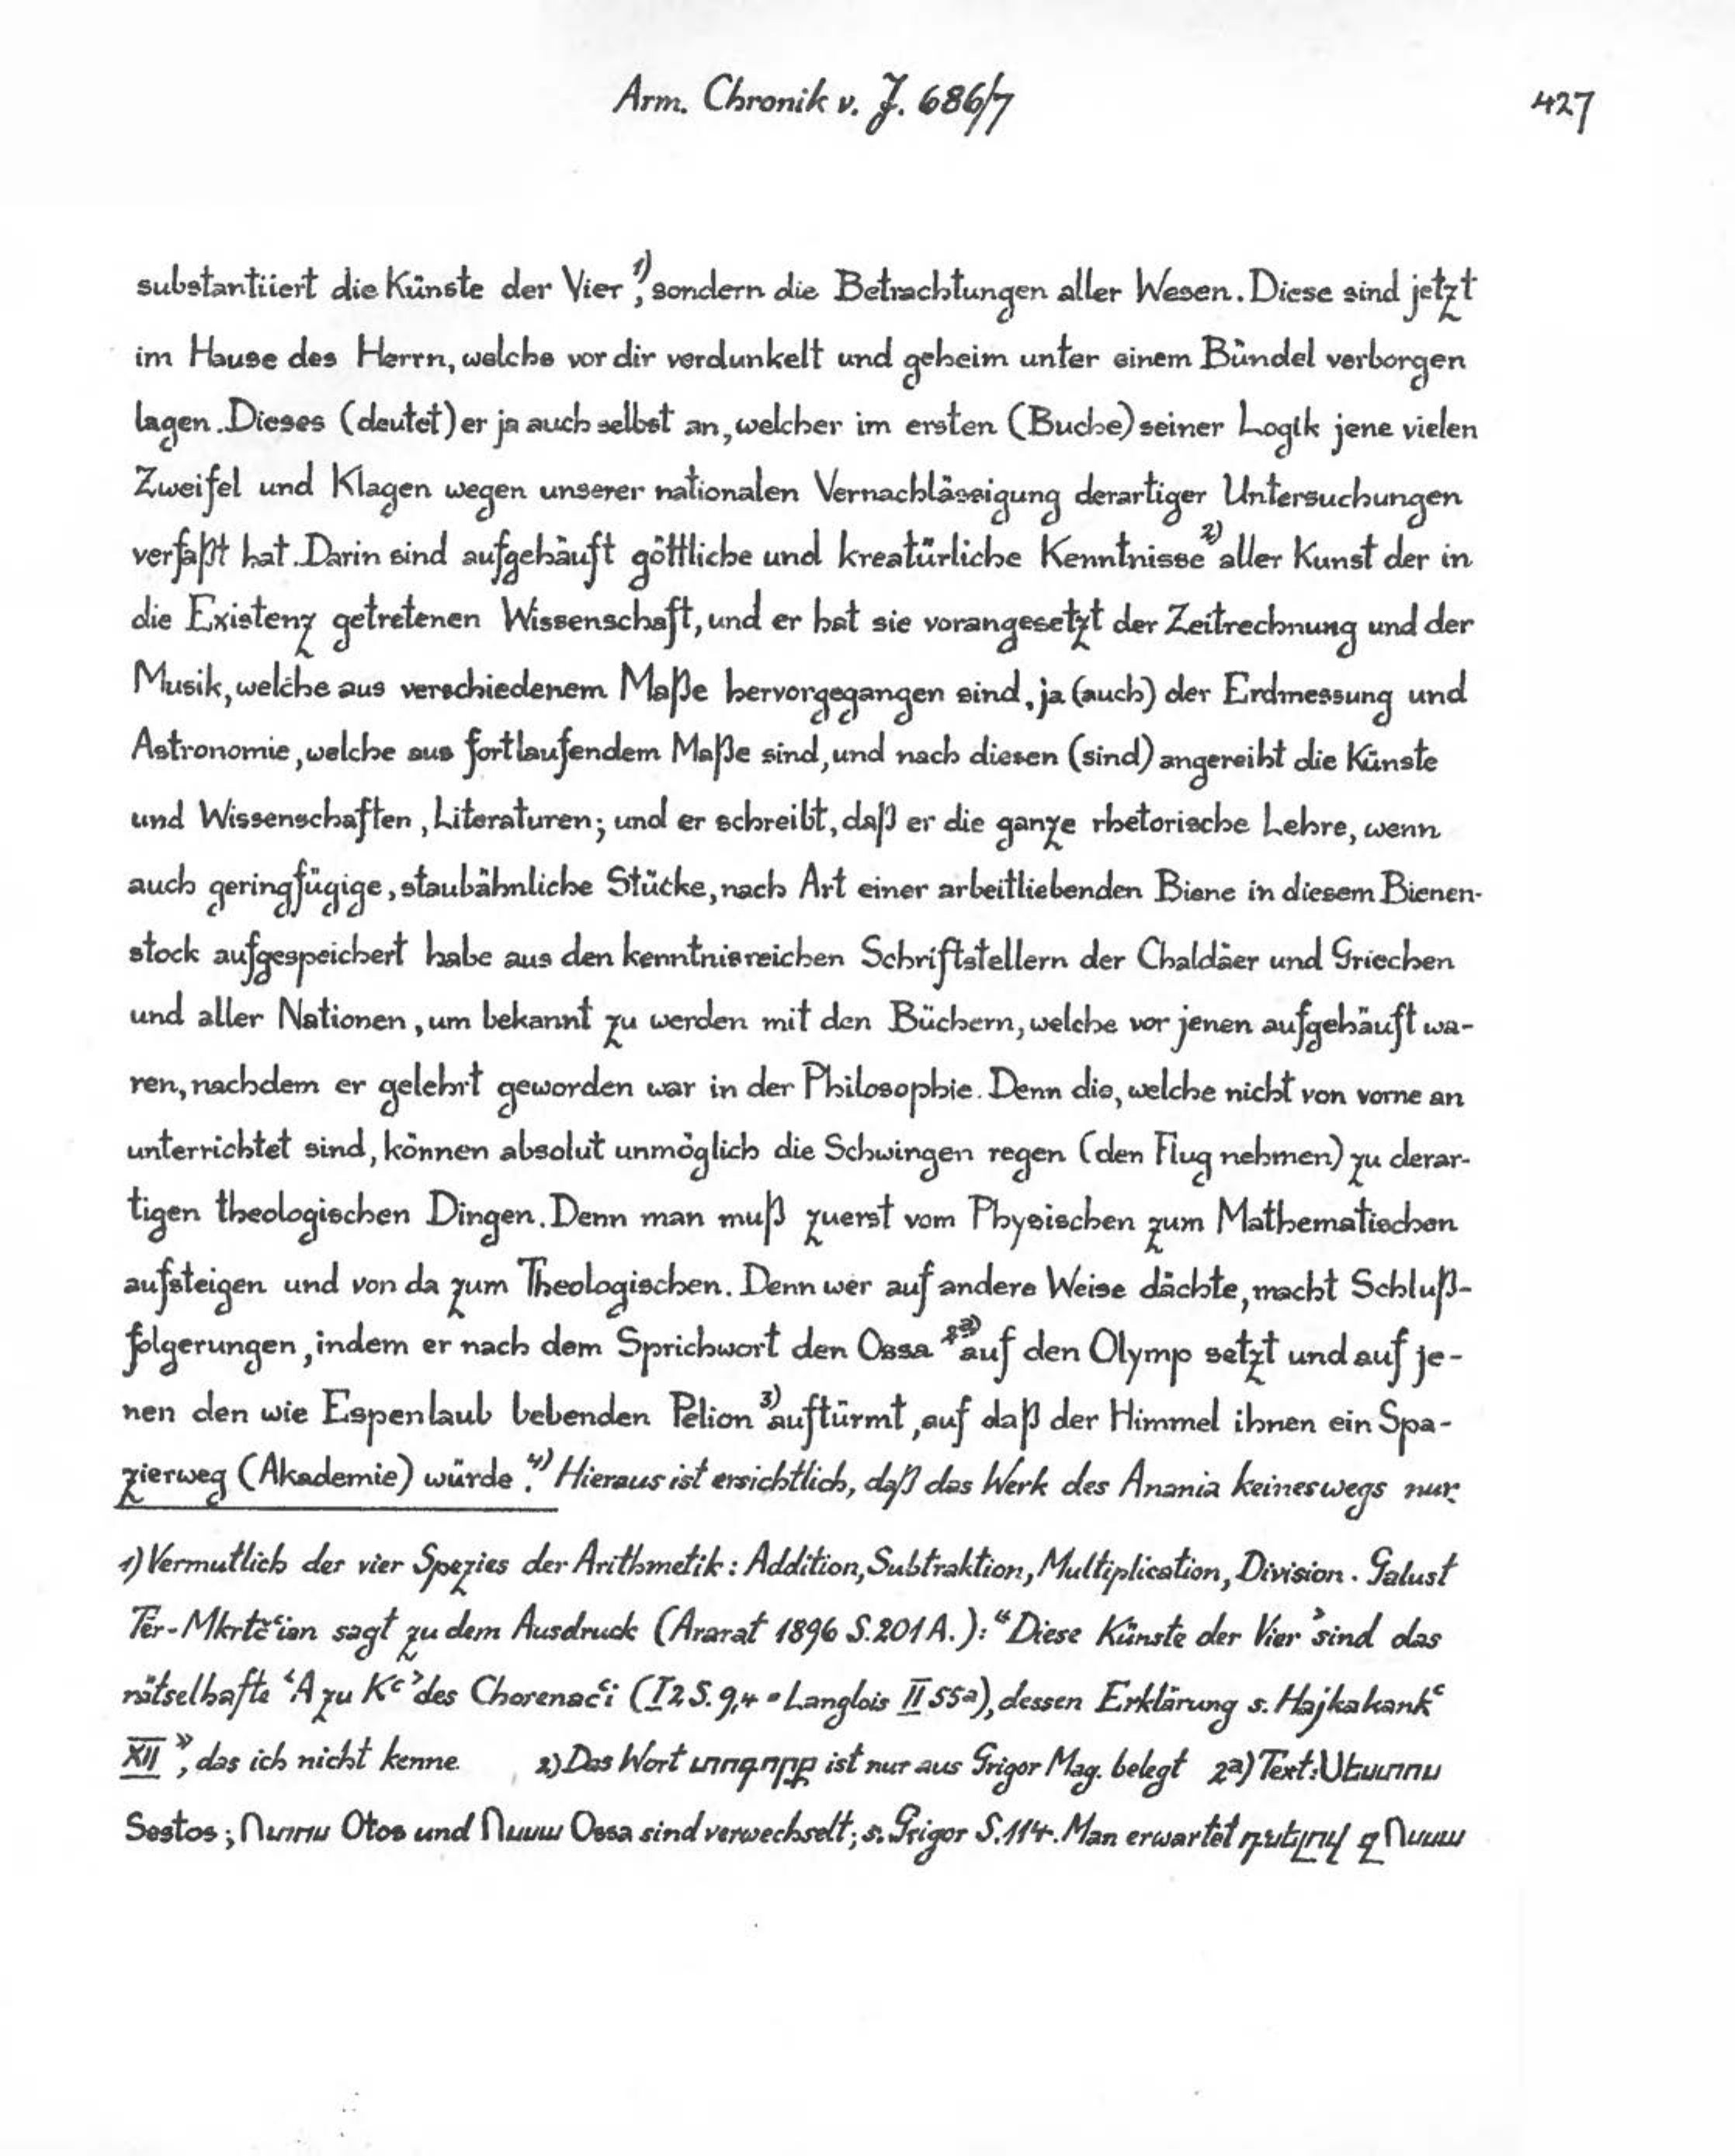 Arm. Chronik v. J. 686/7 427
substantiiert die Künste der Vier¹⁾, sondern die Betrachtungen aller Wesen. Diese sind jetzt
im Hause des Herrn, welche vor dir verdunkelt und geheim unter einem Bündel verborgen
lagen. Dieses (deutet) er ja auch selbst an, welcher im ersten (Buche) seiner Logik jene vielen
Zweifel und Klagen wegen unserer nationalen Vernachlässigung derartiger Untersuchungen
verfaßt hat. Darin sind aufgehäuft göttliche und kreatürliche Kenntnisse²⁾ aller Kunst der in
die Existenz getretenen Wissenschaft, und er hat sie vorangesetzt der Zeitrechnung und der
Musik, welche aus verschiedenem Maße hervorgegangen sind, ja (auch) der Erdmessung und
Astronomie, welche aus fortlaufendem Maße sind, und nach diesen (sind) angereiht die Künste
und Wissenschaften, Literaturen; und er schreibt, daß er die ganze rhetorische Lehre, wenn
auch geringfügige, staubähnliche Stücke, nach Art einer arbeitliebenden Biene in diesem Bienen-
stock aufgespeichert habe aus den kenntnisreichen Schriftstellern der Chaldäer und Griechen
und aller Nationen, um bekannt zu werden mit den Büchern, welche vor jenen aufgehäuft wa-
ren, nachdem er gelehrt geworden war in der Philosophie. Denn die, welche nicht von vorne an
unterrichtet sind, können absolut unmöglich die Schwingen regen (den Flug nehmen) zu derar-
tigen theologischen Dingen. Denn man muß zuerst vom Physischen zum Mathematischen
aufsteigen und von da zum Theologischen. Denn wer auf andere Weise dächte, macht Schluß-
folgerungen, indem er nach dem Sprichwort den Ossa²ᵃ⁾ auf den Olymp setzt und auf je-
nen den wie Espenlaub bebenden Pelion³⁾ auftürmt, auf daß der Himmel ihnen ein Spa-
zierweg (Akademie) würde.⁴⁾ Hieraus ist ersichtlich, daß das Werk des Anania keineswegs nur
1) Vermutlich der vier Spezies der Arithmetik: Addition, Subtraktion, Multiplication, Division. Galust
Tēr-Mkrtč‘ian sagt zu dem Ausdruck (Ararat 1896 S.201 A.): "Diese Künste der Vier’ sind das
rätselhafte ‘A zu K‘’ des Chorenac‘i (I 2 S. 9,4 = Langlois II 55a), dessen Erklärung s. Hajkakank‘
XII", das ich nicht kenne. 2) Das Wort ատոգորք ist nur aus Grigor Mag. belegt 2a) Text: Սեստոս
Sestos; Ոտոս Otos und Ոսսա Ossa sind verwechselt; s. Grigor S.114. Man erwartet դնելով զՈսսա